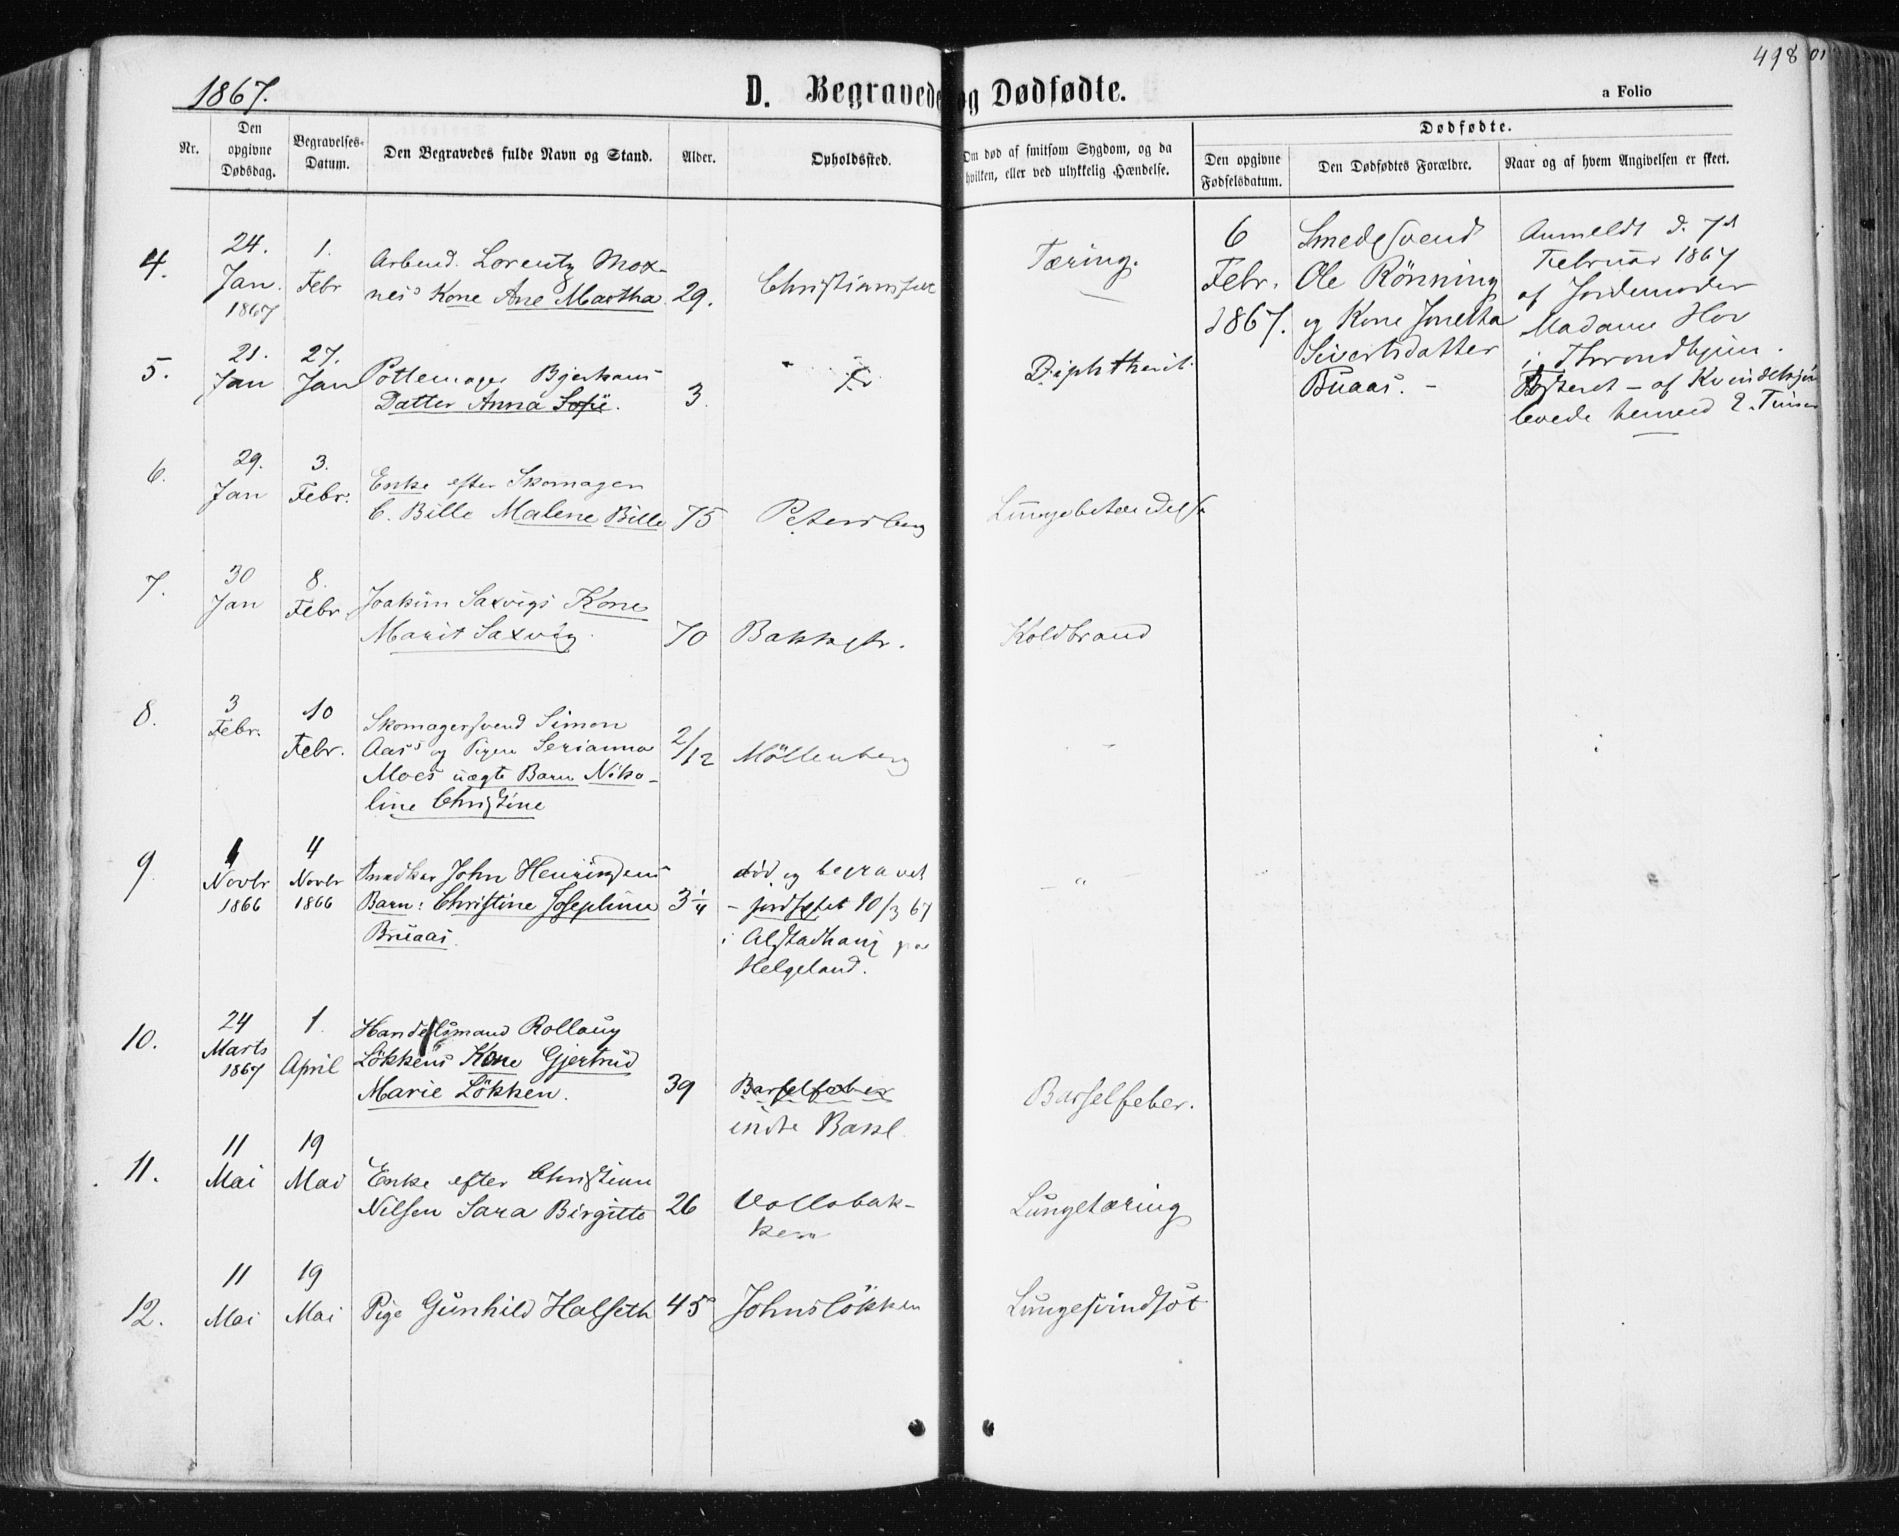 498
1867.
D. Begravede og Dødfødte.
a Folio
Nr.
Den opgivne Dødsdag.
Begravelses-Datum.
Den Begravedes fulde Navn og Stand.
Alder.
Opholdssted.
Om død af smitsom Sygdom, og da hvilken, eller ved ulykkelig Hændelse.
Dødfødte.
Den opgivne Fødselsdatum.
Den Dødfødtes Forældre.
Naar og af hvem Angivelsen er skeet.
4.
24. Jan. 1867
1. Febr
Arbeid. Lorentz Mox-
nes's Kone Ane Martha
29.
Christiansfeldt
Tæring.
6 Febr. 1867.
Smedesvend
Ole Rönning
og Kone Jonetta
Sivertsdatter
Buaas. -
Anmeldt d. 7d
Februar 1867
af Jordemoder
Madame Hov
i Throndhjem.
Fosteret - af Kvindekjøn
levede
5.
21. Jan
27. Jan
Pottemager Bjerkans
Datter Anna Sofie.
3.
Diphtherit.
6.
29. Jan
3. Febr.
Enke efter Skomager
C. Bille Malene Bille
75
Petersberg
Lungebetændelse
7.
30 Jan
8. Febr
Joakim Saxvigs Kone
Marit Saxvig.
70
Bakkegt.
Koldbrand
8.
3 Febr.
10 Febr.
Skomagersvend Simon
Aas's og Pigen Serianna
Moes uægte Barn Niko-
line Christine
2/12
Möllenberg
-
9
1 Novbr 1866
4 Novbr 1866
Snedker John Henriksens
Barn: Christine Josephine
Bruaas.
3 1/4
død og begravet
- jordfæstet 10/3 67
i Alstadhaug paa
Helgeland.
- " -
10.
24 Marts 1867
1. April
Handelsmand Rollaug
Lökkens Kone Gjertrud
Marie Lökken.
39
Barselfeber
indre Bakl.
Barselfeber.
11.
11 Mai
19 Mai
Enke efter Christian
Nilsen Sara Birgitte
26
Vollabak-
ken
Lungetæring
12.
11 Mai
19 Mai
Pige Gunhild Halseth
45
Johnslökken
Lungesvindsot